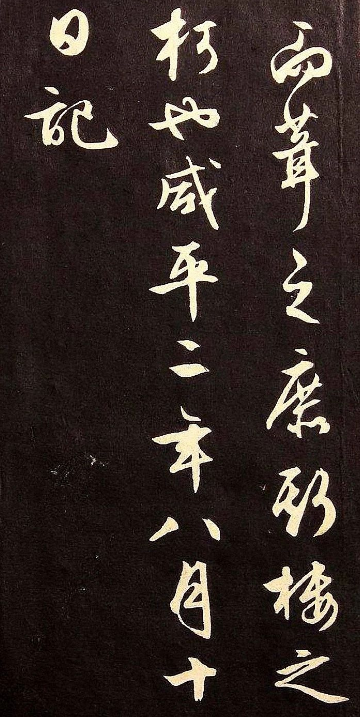 而葺之庶斯樓之
朽也咸平二年八月十
日記